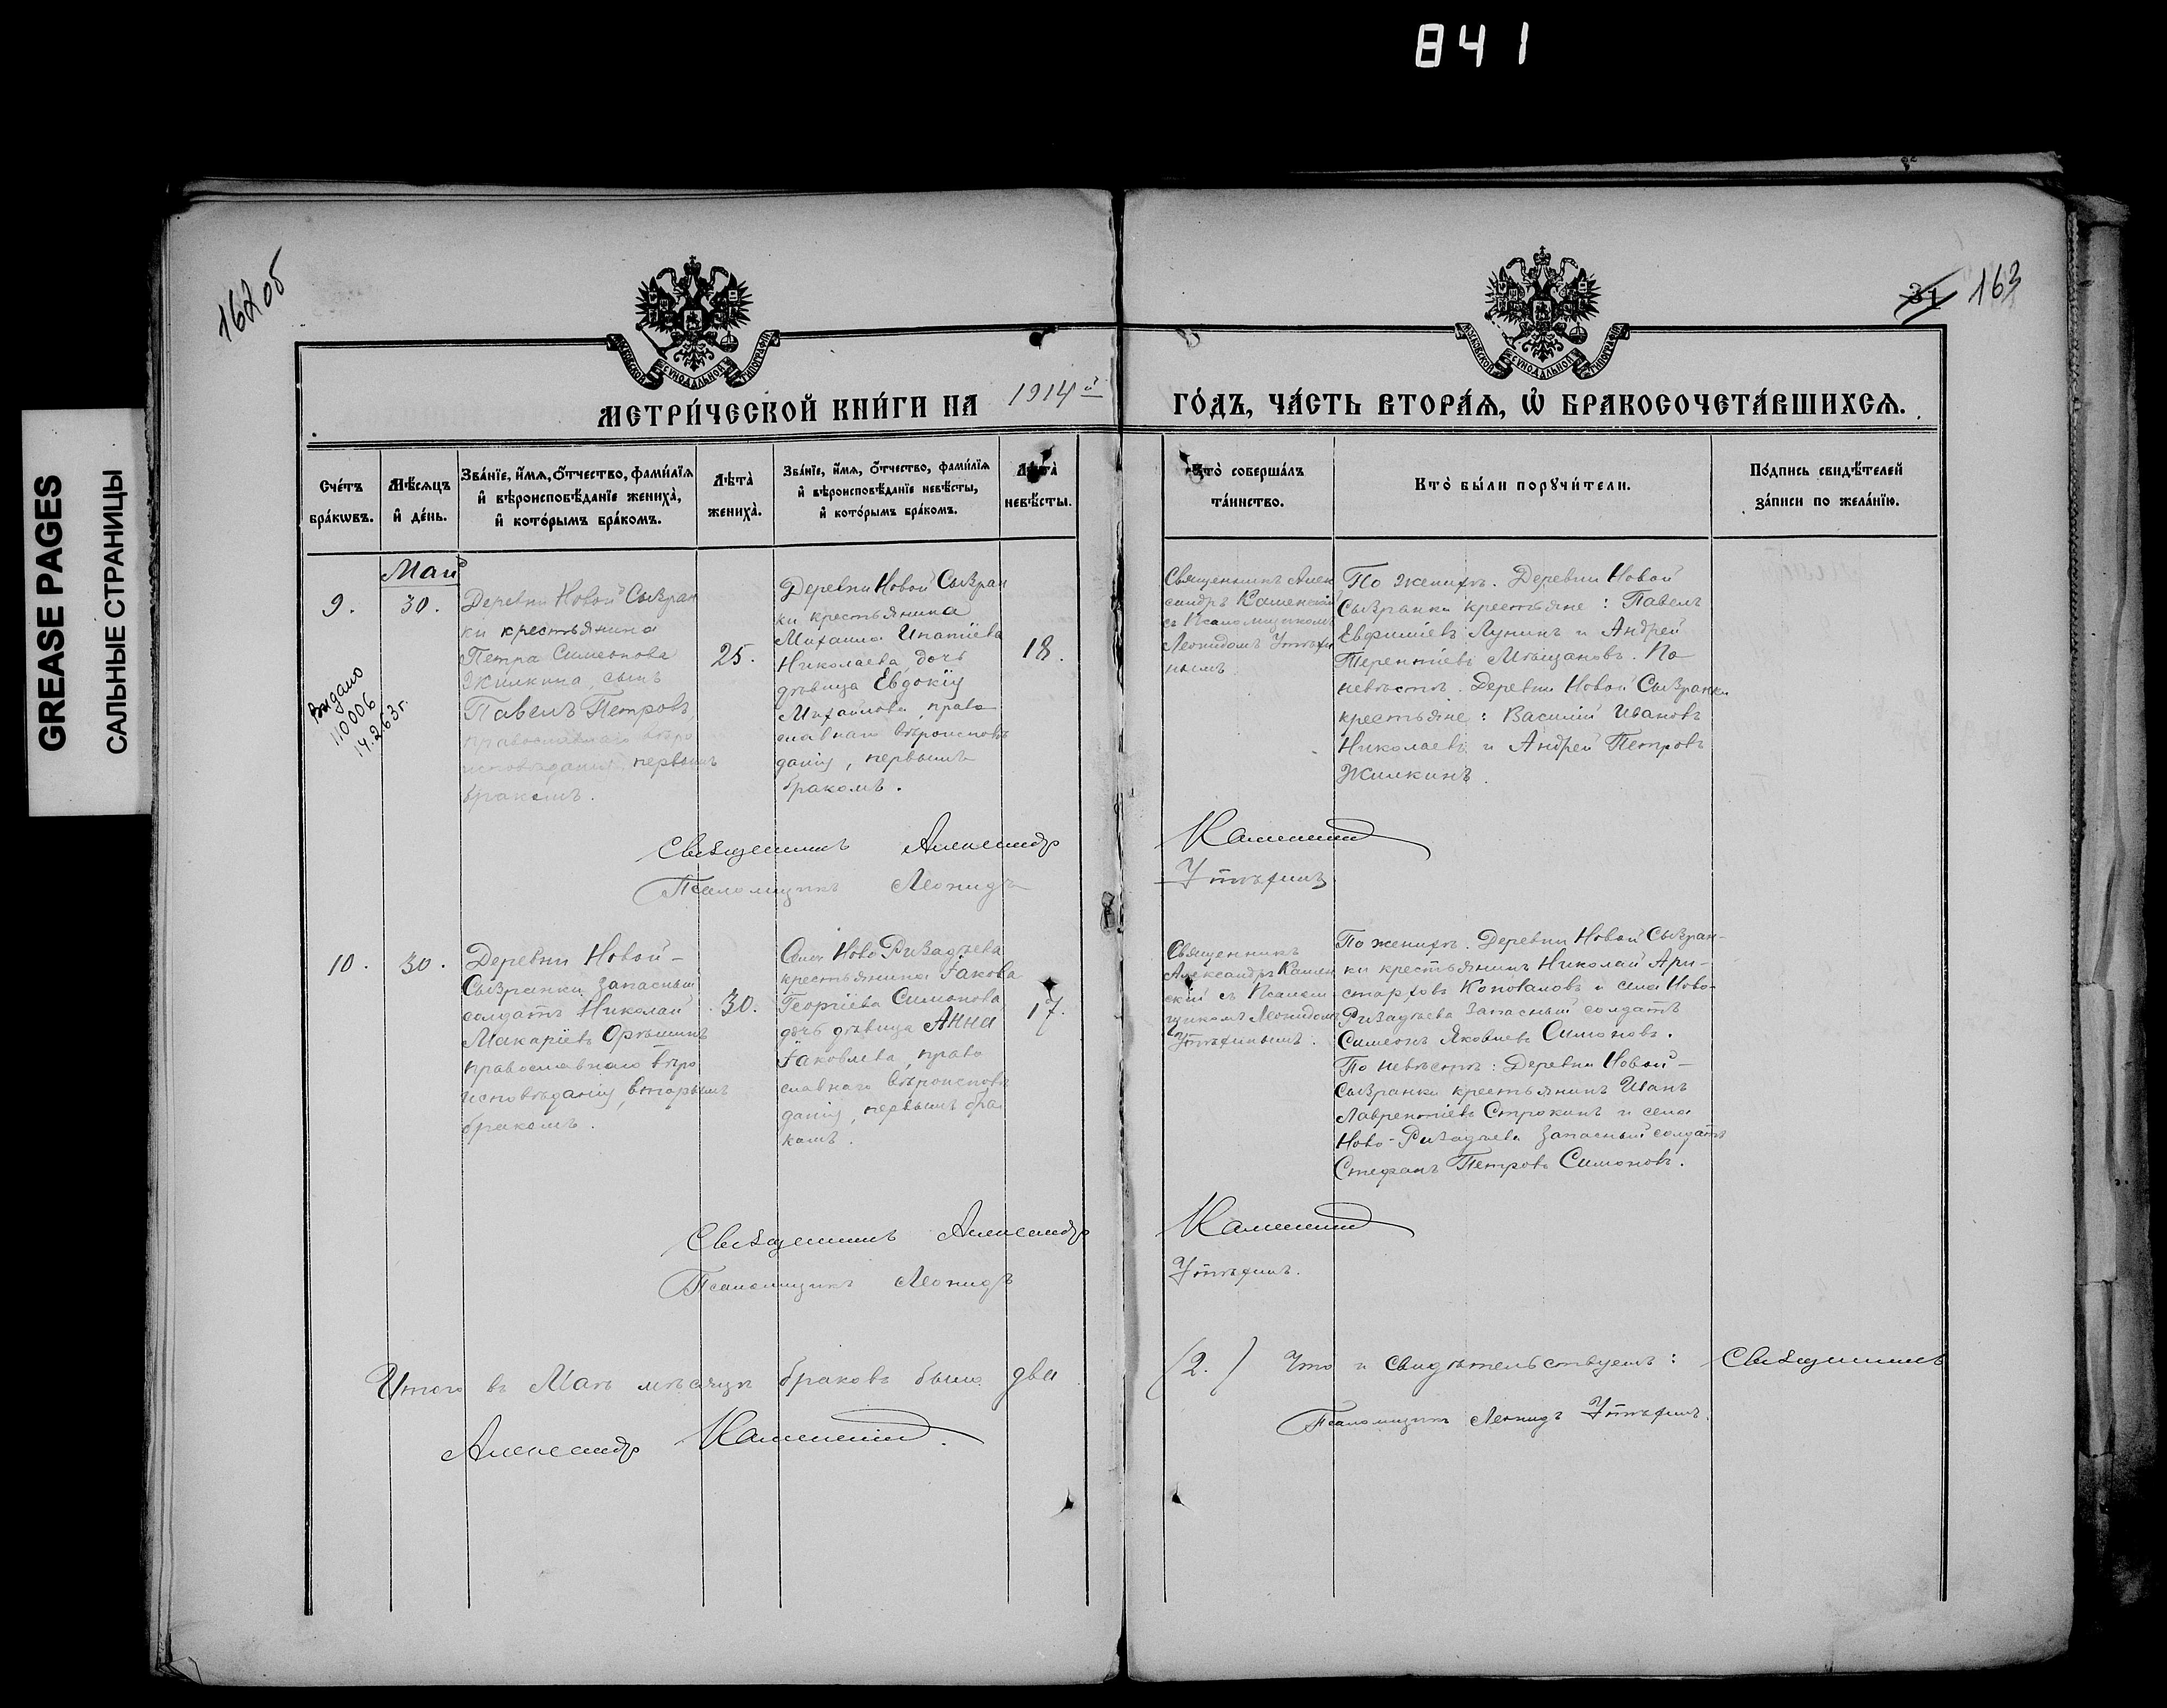 841
GREASE PAGES
САЛЬНЫЕ СТРАНИЦЫ
162об
31 163
МОСКОВСКОЙ СѴНОДАЛЬНОЙ ТИПОГРАФІИ
МОСКОВСКОЙ СѴНОДАЛЬНОЙ ТИПОГРАФІИ
МЕТРИ́ЧЕСКОЙ КНИ́ГИ НА 1914й ГО́ДЪ, ЧА́СТЬ ВТОРА́Я, Ѡ҆ БРАКОСОЧЕТА́ВШИХСЯ.
Сче́тъ
бра́кѡвъ.
Мѣ́сяцъ
и҆ де́нь.
Зва́нїе, и҆́мя, ѻ҆́тчество, фами́лїя
и҆ вѣроисповѣ́данїе жениха̀,
и҆ кото́рымъ бра́комъ.
Лѣта̀
жениха̀.
Зва́нїе, и҆́мя, ѻ҆́тчество, фами́лїя
и҆ вѣроисповѣ́данїе невѣ́сты,
и҆ кото́рымъ бра́комъ.
Лѣта̀
невѣ́сты.
Кто̀ соверша́лъ
та́инство.
Кто̀ бы́ли порꙋчи́тели.
По́дпись свидѣ́телей
за́писи по жела́нїю.
Май
9.
30.
Выдано
110006
14.2.63г.
Деревни Новой Сызран
ки крестьянина
Петра Симеонова
Жилкина, сынъ
Павелъ Петровъ,
православнаго вѣро
исповѣданія, первымъ
бракомъ.
25.
Деревни Новой Сызран
ки крестьянина
Михаила Ипатіева
Николаева дочь
дѣвица Евдокія
Михайлова, право
славнаго вѣроисповѣ
данія, первымъ
бракомъ.
18.
Священникъ Алек
сандръ Каменскій
съ Псаломщикомъ
Леонидомъ Утѣхи
нымъ
По женихѣ. Деревни Новой
Сызранки крестьяне: Павелъ
Евфиміевъ Лунинъ и Андрей
Терентіевъ Мѣщановъ. По
невѣстѣ. Деревни Новой Сызранки
крестьяне: Василій Ивановъ
Николаевъ и Андрей Петровъ
Жилкинъ.
Священникъ Александр Каменскій
Псаломщикъ Леонидъ Утѣхинъ
10.
30.
Деревни Новой-
Сызранки запасный
солдатъ Николай
Макаріевъ Орѣшинъ
православнаго вѣро
исповѣданія, вторымъ
бракомъ.
30.
Села Ново Ризадѣева
крестьянина Іакова
Георгіева Симонова
дочь дѣвица Анна
Іаковлева, право
славнаго вѣроисповѣ
данія, первымъ бра
комъ.
17.
Священникъ
Александръ Камен
скій съ Псалом
щикомъ Леонидомъ
Утѣхинымъ.
По женихѣ. Деревни Новой Сызран-
ки крестьянинъ Николай Ари-
старховъ Коноваловъ и села Ново-
Ризадѣева запасный солдатъ
Симеонъ Яковлевъ Симоновъ.
По невѣстѣ: Деревни Новой-
Сызранки крестьянинъ Иванъ
Лаврентіевъ Строкинъ и села
Ново-Ризадѣева запасный солдатъ
Стефанъ Петровъ Симоновъ.
Священникъ Александр Каменскій
Псаломщикъ Леонидъ Утѣхинъ.
Итого въ Маѣ мѣсяцѣ браковъ было два (2.) Что и свидѣтельствуемъ: Священникъ
Александр Каменскій. Псаломщикъ Леонидъ Утѣхинъ.